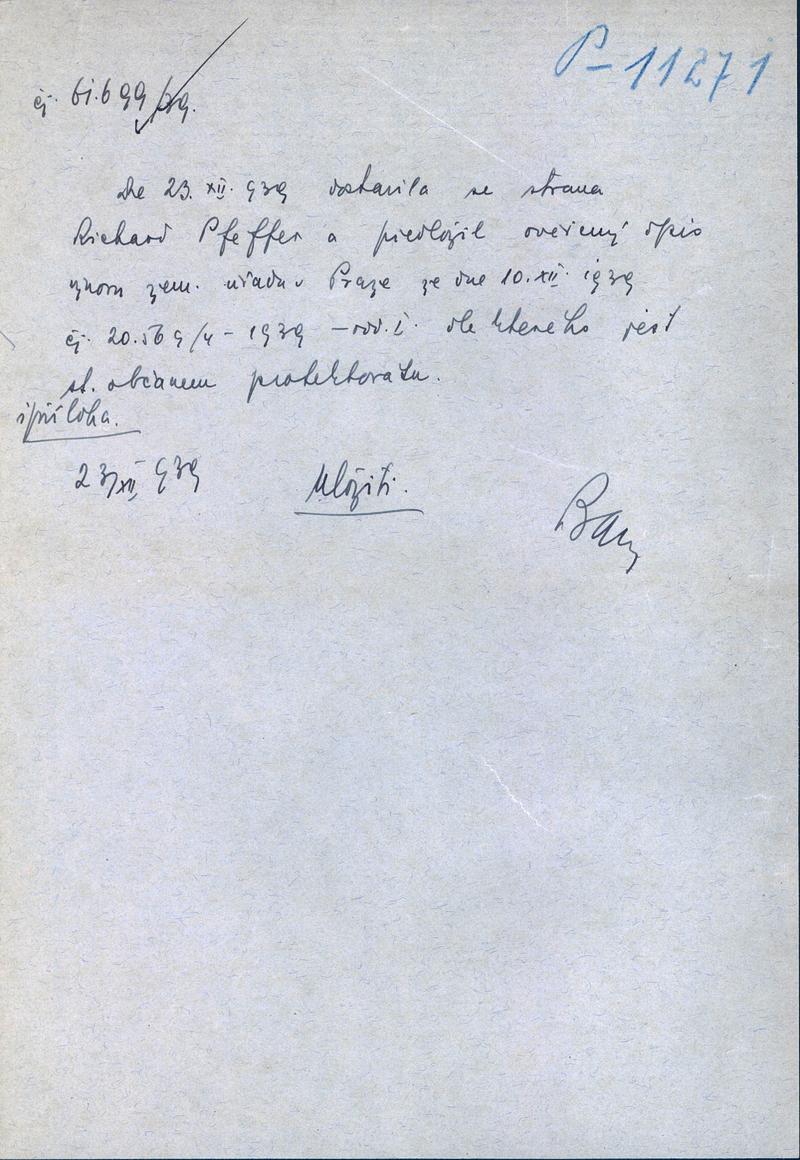 P-11271
čj. 61.699/39.
Dne 23. XII. 939 dostavila se strana
Richard Pfeffer a předložil ověřený opis
výnosu zem. úřadu v Praze ze dne 10. XII. 1939
čj. 20.569/4-1939 - odd. I. dle kterého jest
st. občanem protektorátu.
1 příloha.
23/XII 939
Uložiti.